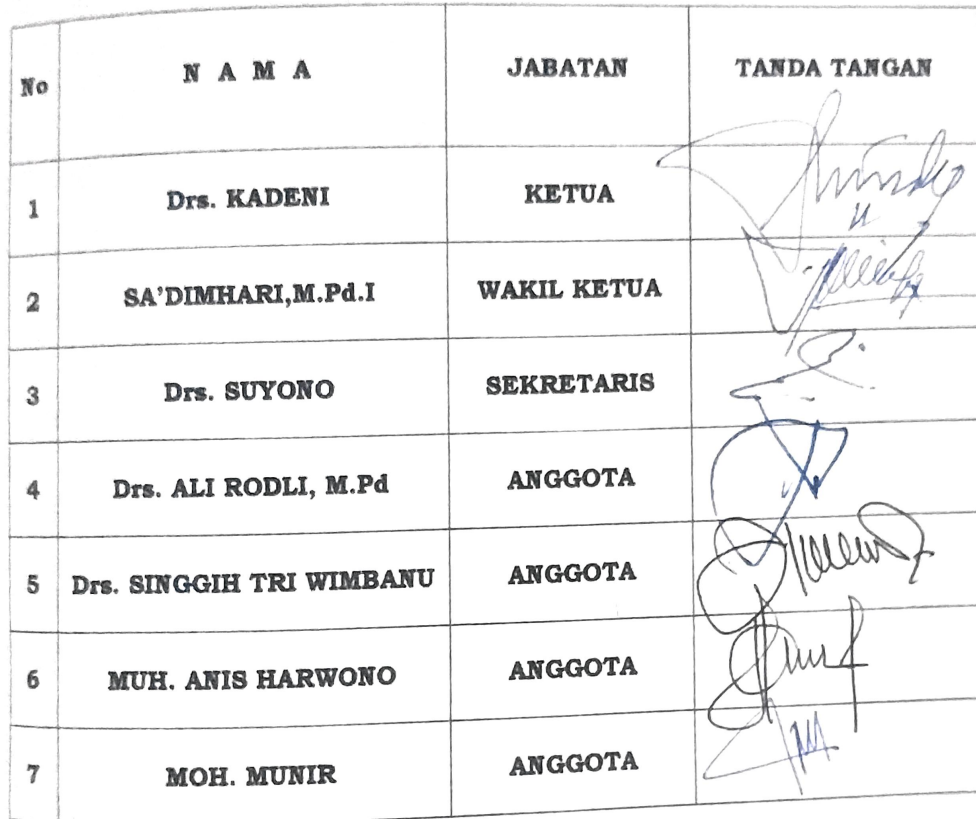 No N A M A JABATAN TANDA TANGAN
1 Drs. KADENI KETUA
2 SA'DIMHARI,M.Pd.I WAKIL KETUA
3 Drs. SUYONO SEKRETARIS
4 Drs. ALI RODLI, M.Pd ANGGOTA
5 Drs. SINGGIH TRI WIMBANU ANGGOTA
6 MUH. ANIS HARWONO ANGGOTA
7 MOH. MUNIR ANGGOTA